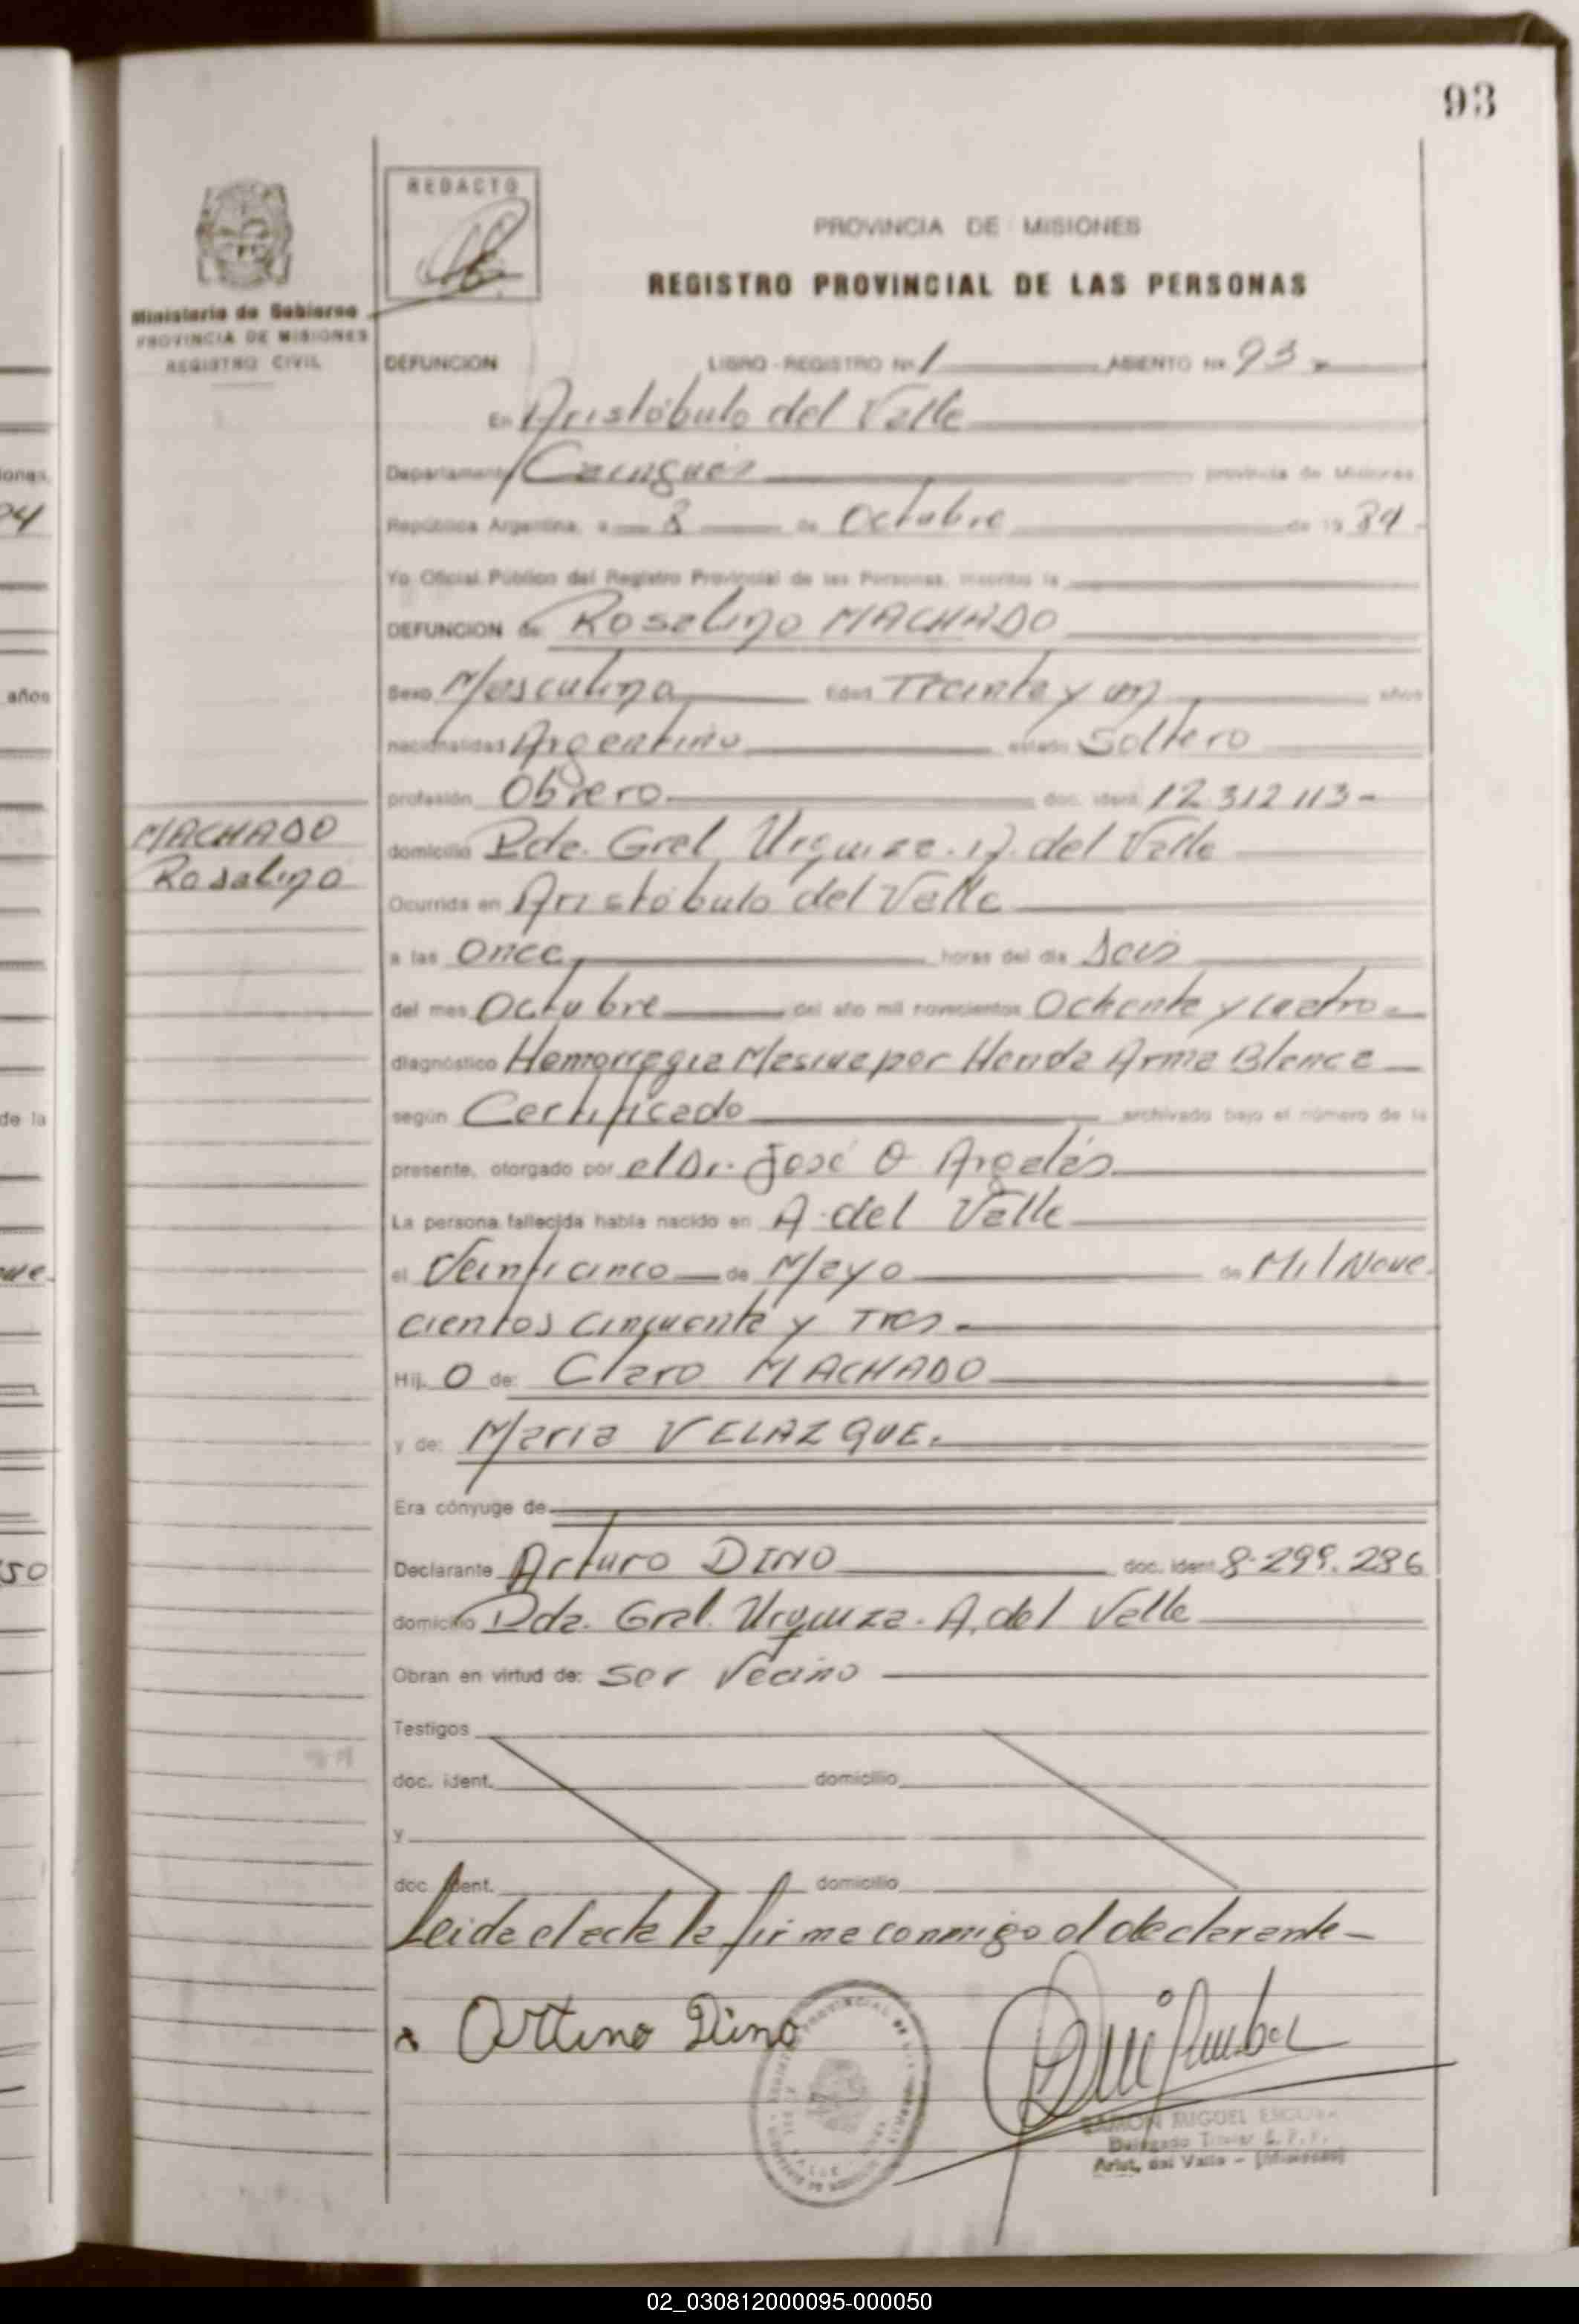 93
REDACTO
PROVINCIA DE MISIONES
REGISTRO PROVINCIAL DE LAS PERSONAS
Ministerio de Gobierno
PROVINCIA DE MISIONES
REGISTRO CIVIL
DEFUNCION LIBRO-REGISTRO Nº 1 ASIENTO Nº 93
En Aristóbulo del Valle
Departamento Cainguás provincia de Misiones,
República Argentina, a 8 de Octubre de 19 84.
Yo Oficial Público del Registro Provincial de las Personas, inscribo la
DEFUNCION de Rosalino MACHADO
Sexo Masculino Edad Treinta y un años
nacionalidad Argentino estado Soltero
profesión Obrero doc. ident. 12.312 113-
MACHADO
Rosalino
domicilio Pde. Gral Urquiza. A. del Valle
Ocurrida en Aristóbulo del Valle
a las Once horas del día Seis
del mes Octubre del año mil novecientos Ochenta y cuatro
diagnóstico Hemorragia Masiva por Herida Arma Blanca
según Certificado archivado bajo el número de la
presente, otorgado por el Dr. José O
La persona fallecida había nacido en A. del Valle
el Veinticinco de Mayo de Mil Nove.
cientos Cincuenta y Tres.
Hij O de: Claro MACHADO
y de: Maria VELAZQUE.
Era cónyuge de
Declarante Arturo DINO doc. ident. 8.299.286
domicilio Pde. Gral. Urquiza. A. del Valle
Obran en virtud de: ser Vecino
Testigos
doc. ident. domicilio
y
doc. ident. domicilio
Leida el acta la firma conmigo el declarante
Arturo Dino
RAMON MIGUEL
Delegado Titular
Arist. del Valle - (Misiones)
años
de la
50
02_030812000095-000050